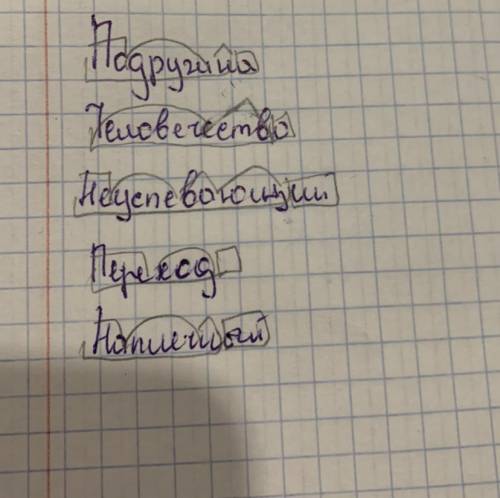 Подругина
Человечество
Неуспевающий
Переход
Наплечный